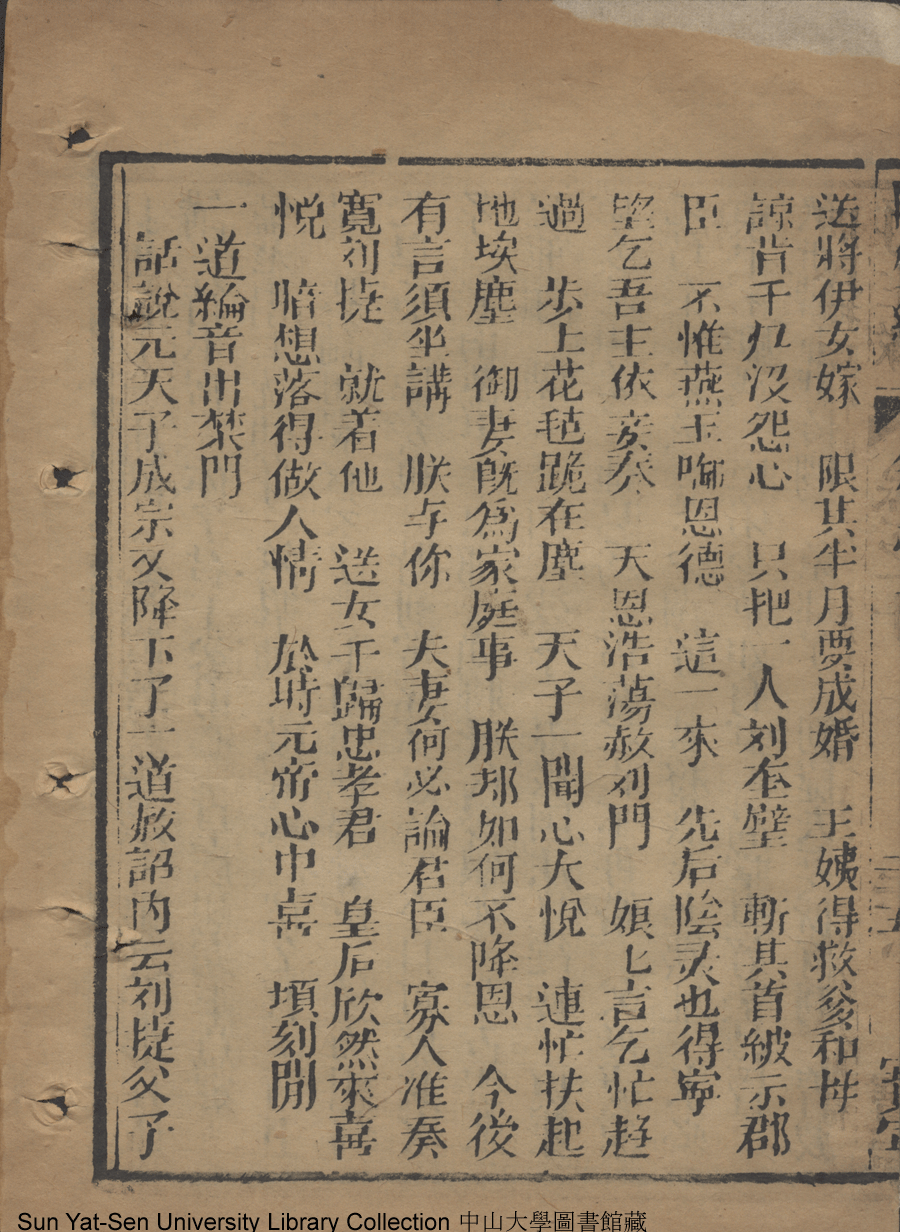 送將伊女嫁　限其半月要成婚　王姨得救爹和母
諒皆千九没怨心　只把一人刘奎璧　斬其首級示郡
臣　不惟燕王啣恩德　這一來　先后陰灵也得寧
望乞吾主依妾奏　天恩浩蕩赦刘門　娘匕言乞忙趋
過　步上花毡跪在塵　天子一聞心大悅　連忙扶起
地埃塵　御妻旣為家庭事　朕却如何不降恩　今後
有言須坐講　朕与你　夫妻何必論君臣　寡人准奏
寬刘捷　就着他　送女于歸忠孝君　皇后欣然來喜
悅　暗想落得做人情　於時元帝心中喜　頃刻間
一道綸音出禁門
話說元天子成宗又降下了一道赦詔内云刘捷父子
Sun Yat-Sen University Library Collection 中山大學圖書館藏